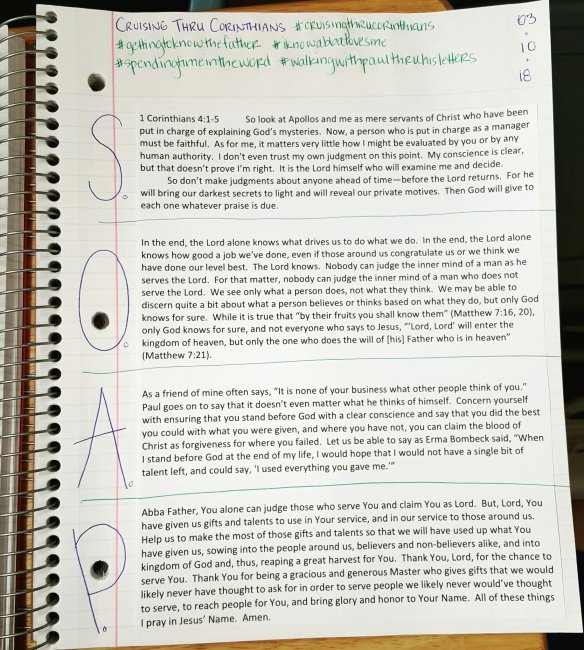 CRUISING THRU CORINTHIANS #cruisingthrucorinthians
#gettingtoknowthefather #iknowabbalovesme
#spendingtimeintheword #walkingwithpaulthruhisletters
03
"
10
"
18
S.
1 Corinthians 4:1-5 So look at Apollos and me as mere servants of Christ who have been
put in charge of explaining God's mysteries. Now, a person who is put in charge as a manager
must be faithful. As for me, it matters very little how I might be evaluated by you or by any
human authority. I don't even trust my own judgment on this point. My conscience is clear,
but that doesn't prove I'm right. It is the Lord himself who will examine me and decide.
So don't make judgments about anyone ahead of time—before the Lord returns. For he
will bring our darkest secrets to light and will reveal our private motives. Then God will give to
each one whatever praise is due.
O.
In the end, the Lord alone knows what drives us to do what we do. In the end, the Lord alone
knows how good a job we've done, even if those around us congratulate us or we think we
have done our level best. The Lord knows. Nobody can judge the inner mind of a man as he
serves the Lord. For that matter, nobody can judge the inner mind of a man who does not
serve the Lord. We see only what a person does, not what they think. We may be able to
discern quite a bit about what a person believes or thinks based on what they do, but only God
knows for sure. While it is true that "by their fruits you shall know them" (Matthew 7:16, 20),
only God knows for sure, and not everyone who says to Jesus, "'Lord, Lord' will enter the
kingdom of heaven, but only the one who does the will of [his] Father who is in heaven"
(Matthew 7:21).
A.
As a friend of mine often says, "It is none of your business what other people think of you."
Paul goes on to say that it doesn't even matter what he thinks of himself. Concern yourself
with ensuring that you stand before God with a clear conscience and say that you did the best
you could with what you were given, and where you have not, you can claim the blood of
Christ as forgiveness for where you failed. Let us be able to say as Erma Bombeck said, "When
I stand before God at the end of my life, I would hope that I would not have a single bit of
talent left, and could say, 'I used everything you gave me.'"
P.
Abba Father, You alone can judge those who serve You and claim You as Lord. But, Lord, You
have given us gifts and talents to use in Your service, and in our service to those around us.
Help us to make the most of those gifts and talents so that we will have used up what You
have given us, sowing into the people around us, believers and non-believers alike, and into
kingdom of God and, thus, reaping a great harvest for You. Thank You, Lord, for the chance to
serve You. Thank You for being a gracious and generous Master who gives gifts that we would
likely never have thought to ask for in order to serve people we likely never would've thought
to serve, to reach people for You, and bring glory and honor to Your Name. All of these things
I pray in Jesus' Name. Amen.